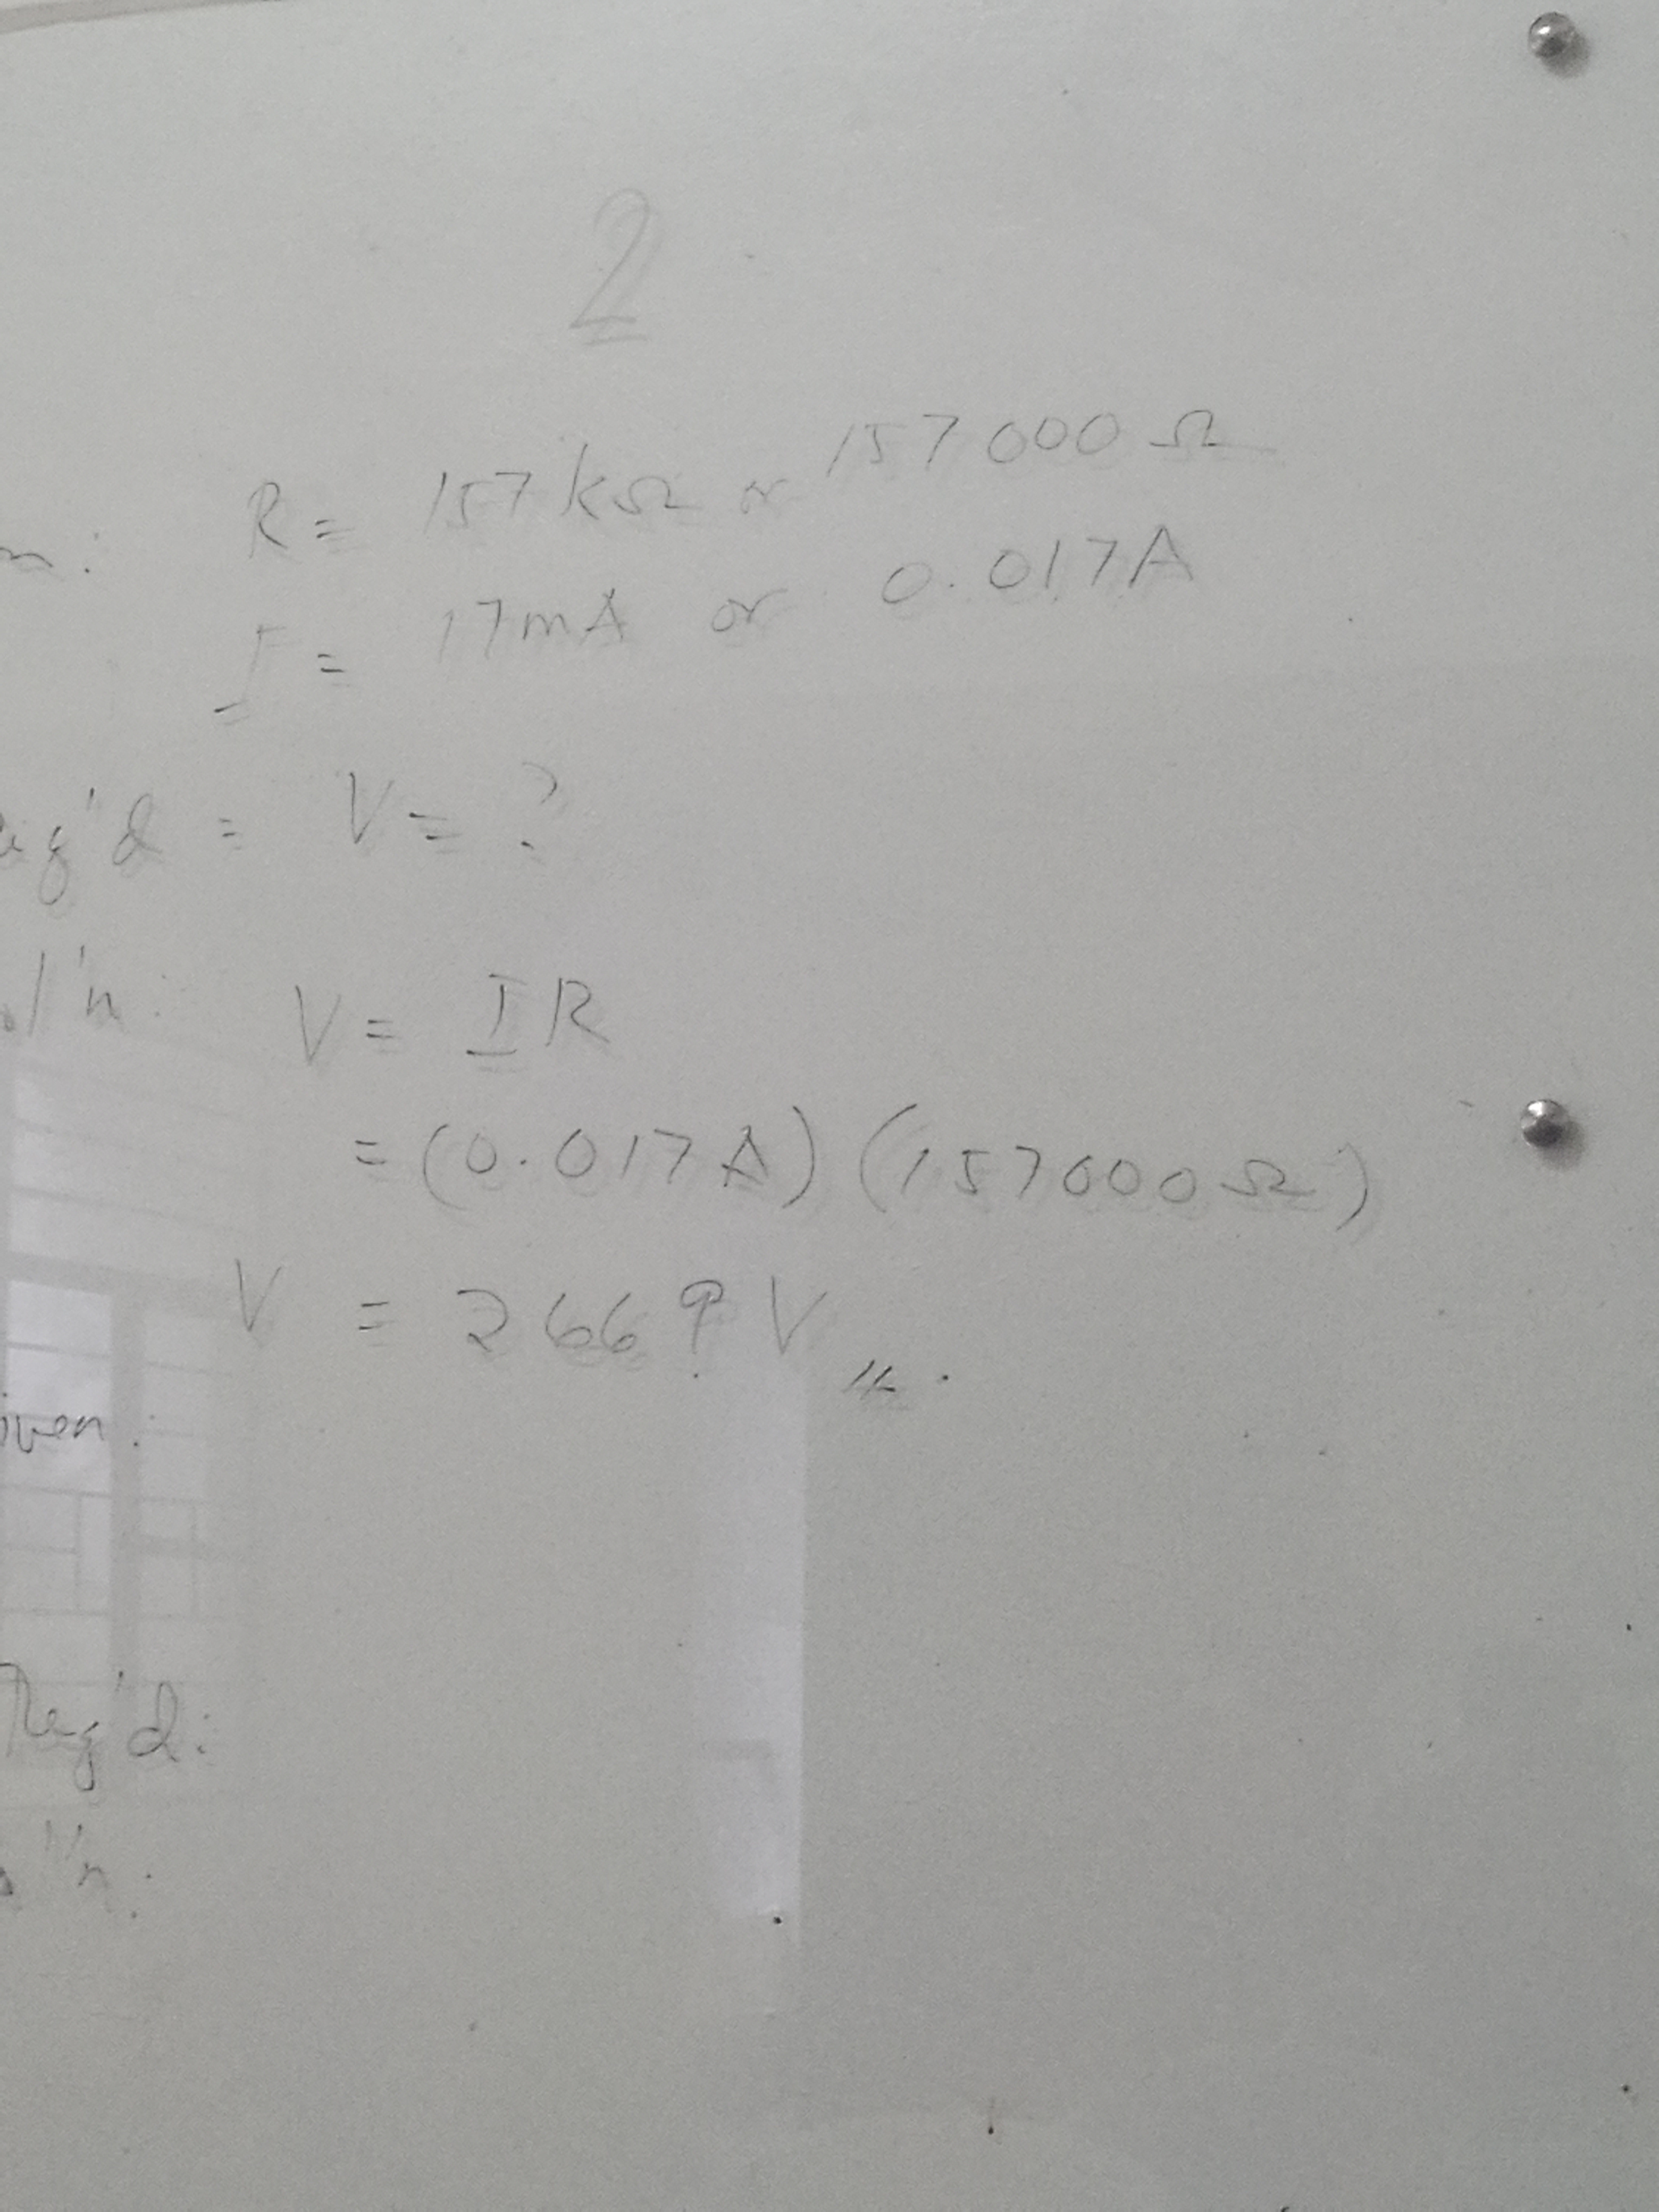 2
n: R = 157 kΩ or 157000 Ω
I = 17mA or 0.017A
eq'd = V = ?
ol'n: V = IR
= (0.017A) (157000Ω)
V = 2669 V
iven:
Req'd:
ol'n: